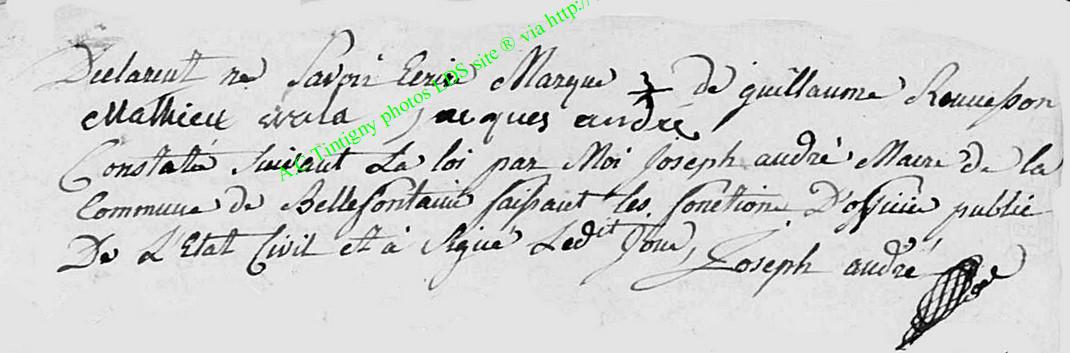 Declarent ne Savoir Ecrire Marque de guillaume Rouvesson
Mathieu jacques andré
Constaté Suivant La loi par Moi Joseph andré Maire de la
Commune de Bellefontaine faisant les fonctions D'officie public
De L'Etat Civil et à Signé Ledit Jour, Joseph andré
AE Tintigny photos LDS site ® via http://